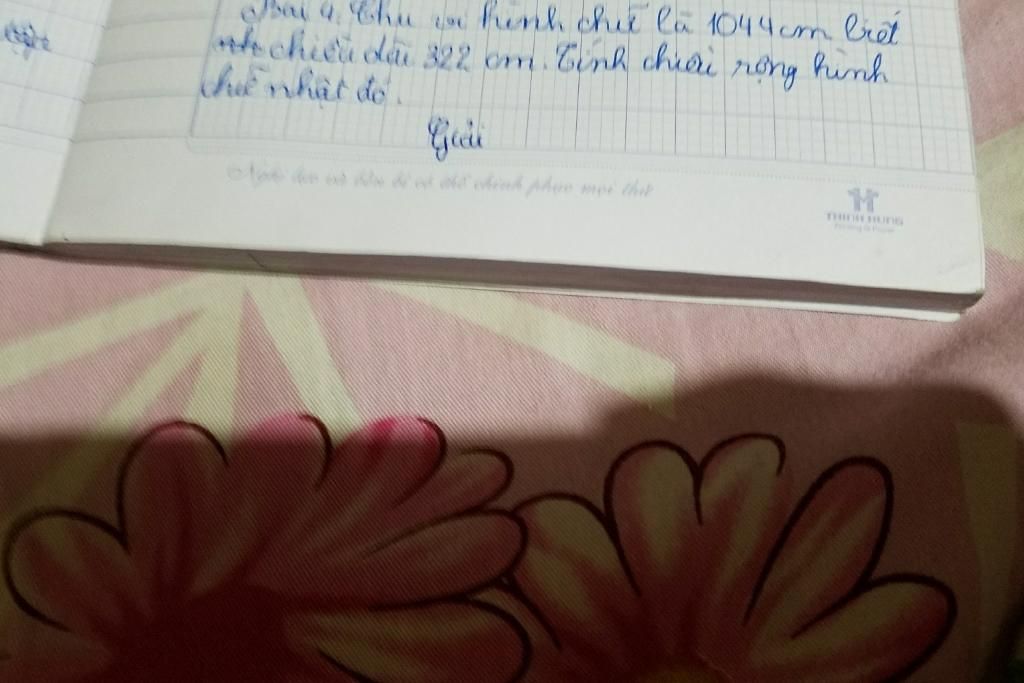 Bài 4. Chu vi hình chữ là 1044 cm biết
chiều dài 322 cm. Tính chiều rộng hình
chữ nhật đó.
Giải
Nghị lực và bền bỉ có thể chinh phục mọi thứ
THINH HUNG
Printing & Paper